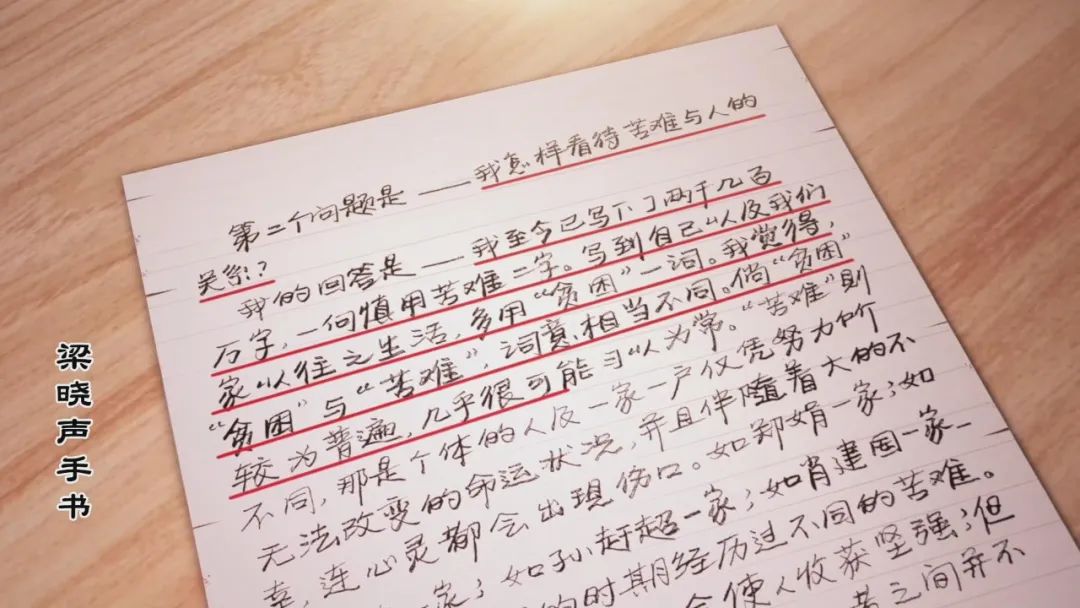 第二个问题是——我怎样看待苦难与人的
关系?
我的回答是——我至今已写下了两千几百
万字,一向慎用苦难二字。写到自己以及我们
家以往之生活,多用“贫困”一词。我觉得,
“贫困”与“苦难”,词意相当不同。倘“贫困”
较为普遍,几乎很可能习以为常。“苦难”则
不同,那是个体的人及一家一户仅凭努力
无法改变的命运状况,并且伴随着大的不
幸,连心灵都会出现伤口。如郑娟一家;如
一家;如孙赶超一家;如肖建国一家_
的时期经历过不同的苦难。
会使人收获坚强;但
者之间并不
梁晓声手书